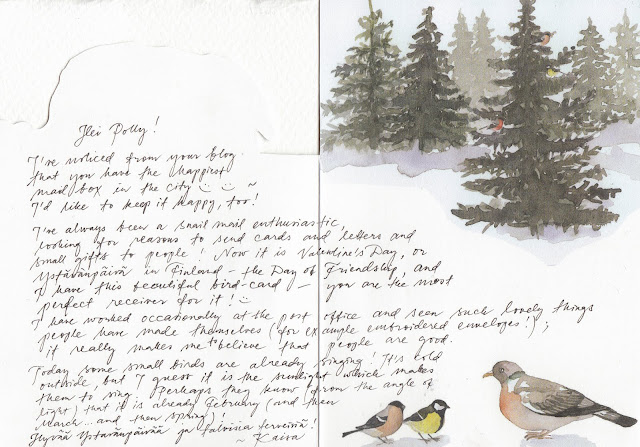 Hei Polly!
I've noticed from your blog
that you have the happiest
mail box in the city :) :) ~
I'd like to keep it happy, too!
I've always been a snail mail enthusiastic,
looking for reasons to send cards and letters and
small gifts to people! Now it is Valentine's Day, or
Ystävänpäivä in Finland – the Day of Friendship, and
I have this beautiful bird-card – you are the most
perfect receiver for it! :)
I have worked occasionally at the post office and seen such lovely things
people have made themselves (for example embroidered envelopes!);
it really makes me to believe that people are good.
Today some small birds are already singing! It's cold
outside, but I guess it is the sunlight which makes
them to sing. Perhaps they know (from the angle of
light) that it is already February (and then
March... and then Spring).
Hyvää Ystävänpäivää ja talvisia terveisiä!
~ Kaisa